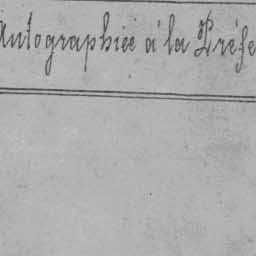 Autographiée à la Préfe